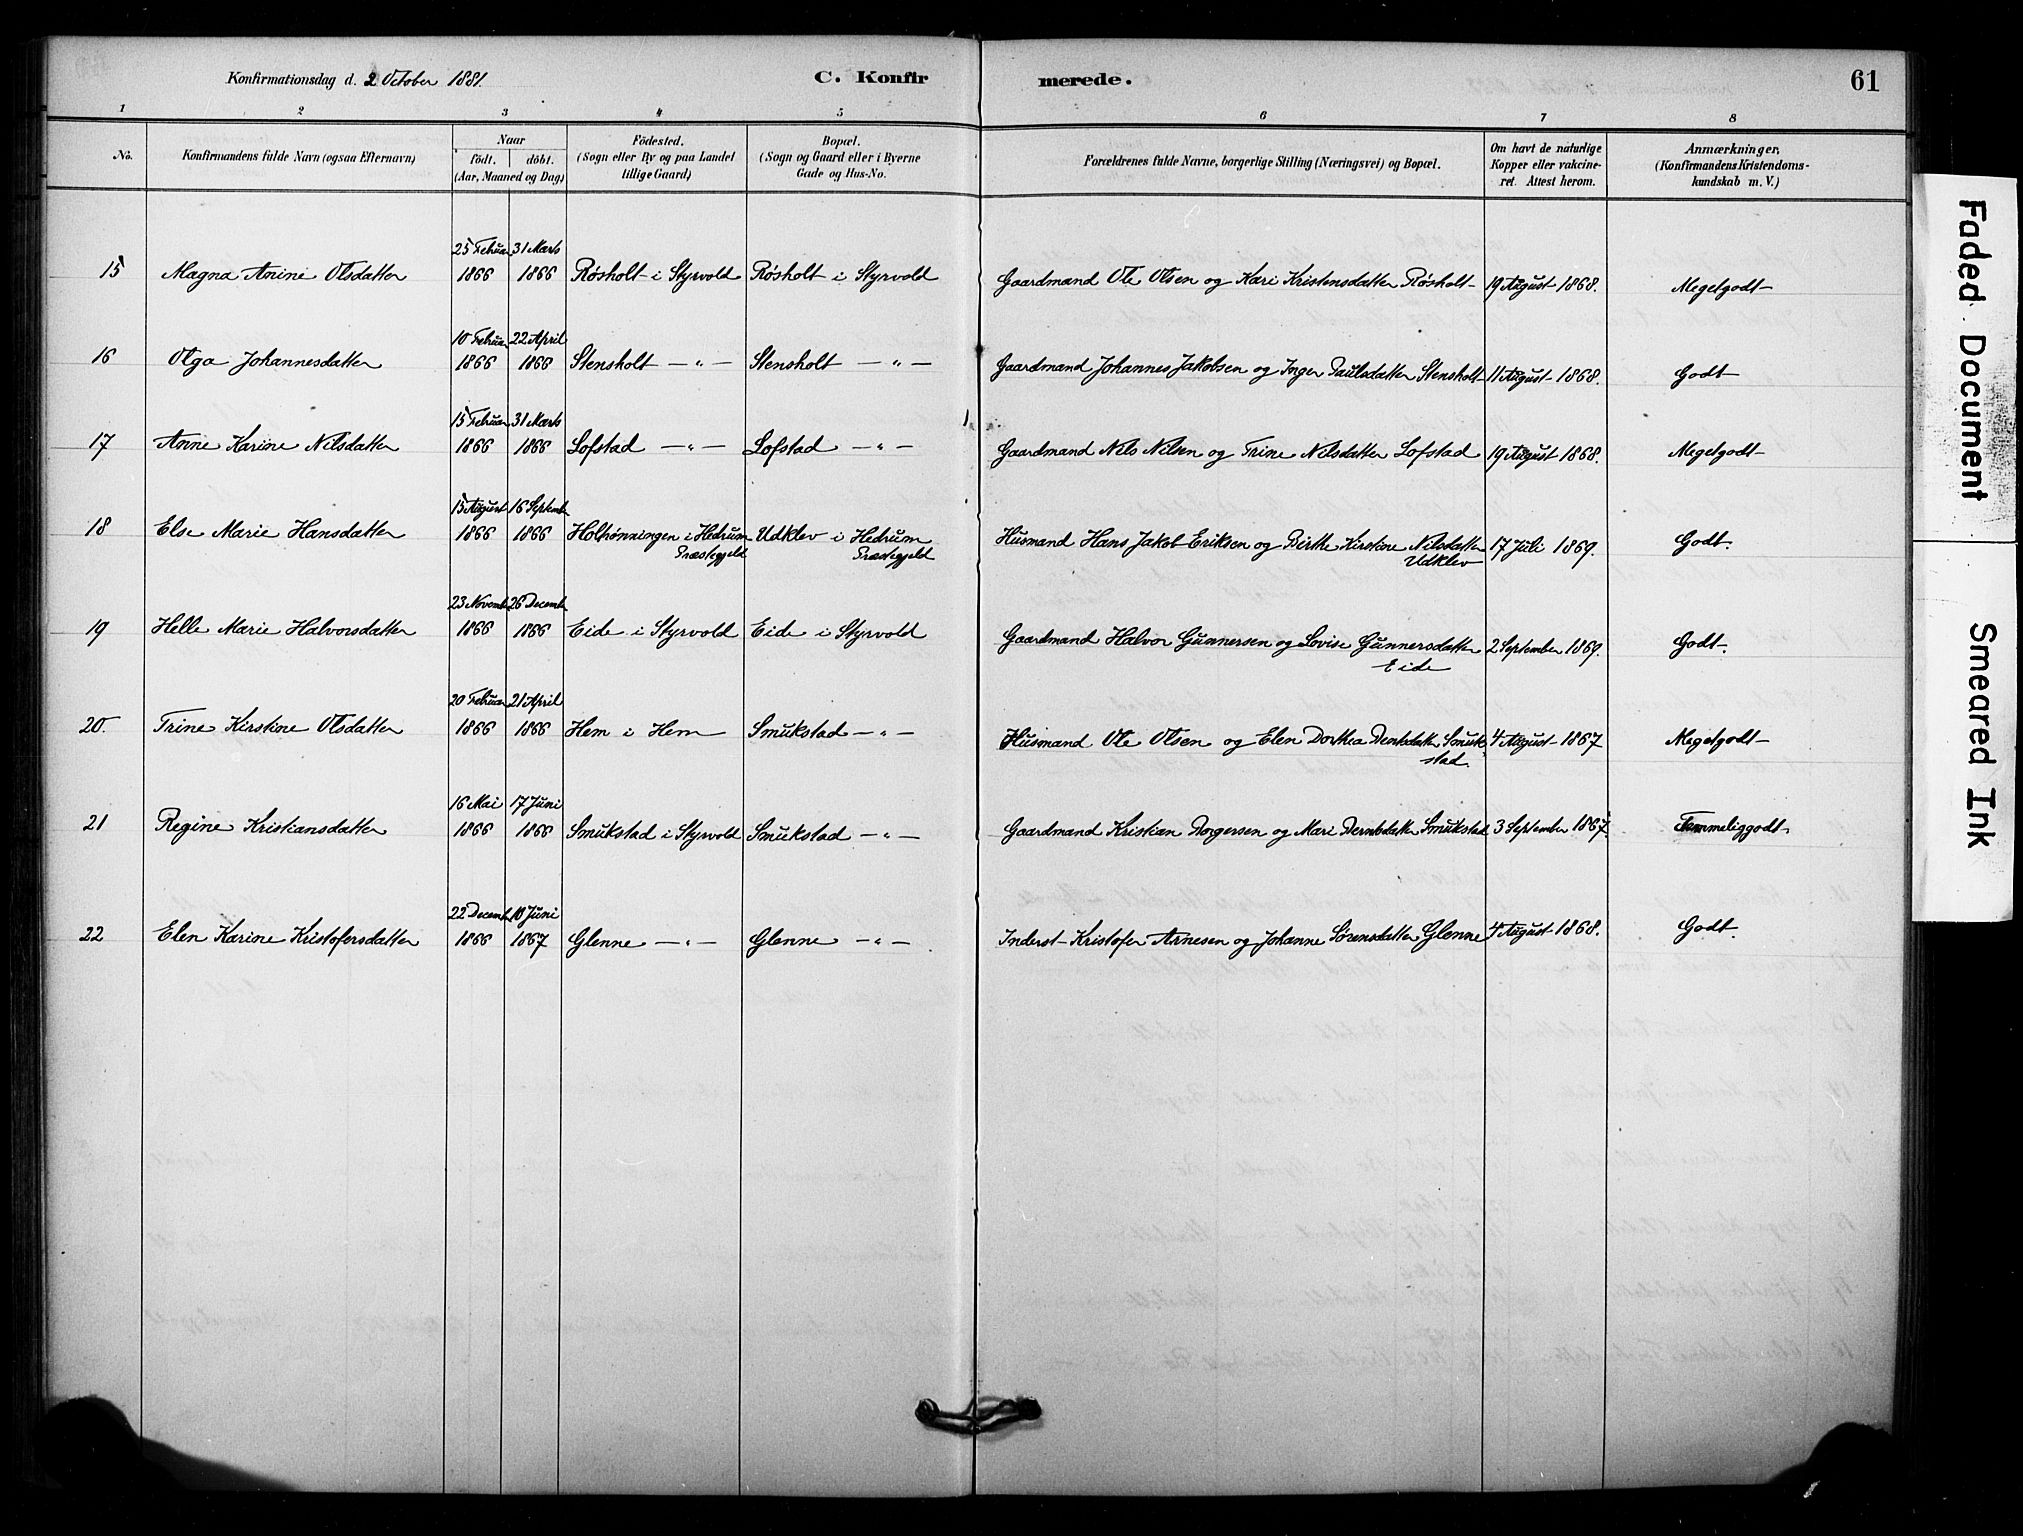 Konfirmationsdag d. 2 October 1881.
C. Konfirmerede.
61
1 2 3 4 5 6 7 8
No.
Konfirmandens fulde Navn (ogsaa Efternavn)
Naar
födt. | döbt.
(Aar, Maaned og Dag)
Födested.
(Sogn eller By og paa Landet
tillige Gaard)
Bopæl.
(Sogn og Gaard eller i Byerne
Gade og Hus-No.
Forældrenes fulde Navne, borgerlige Stilling (Næringsvei) og Bopæl.
Om havt de naturlige
Kopper eller vakcine-
ret. Attest herom.
Anmærkninger,
(Konfirmandens Kristendoms-
kundskab m. V.)
25 Februar 31 Marts
15 Magna Anine Olsdatter 1866 1866 Røsholt i Styrvold Røsholt i Styrvold Gaardmand Ole Olsen og Kari Kristensdatter Røsholt 19 August 1868. Megetgodt
10 Februar 22 April
16 Olga Johannesdatter 1866 1866 Stensholt — " — Stensholt — " — Gaardmand Johannes Jakobsen og Inger Paulsdatter Stensholt 11 August 1868. Godt
15 Februar 31 Marts
17 Anne Karine Nilsdatter 1866 1866 Lofstad — " — Lofstad — " — Gaardmand Nils Nilsen og Trine Nilsdatter Lofstad 19 August 1868. Megetgodt
15 August 16 Septemb
18 Else Marie Hansdatter 1866 1866 Holhønningen i Hedrum Udklev i Hedrum Husmand Hans Jakob Eriksen og Birthe Kirstine Nilsdatter 17 Juli 1869. Godt.
Præstegjeld Præstegjeld Udklev
23 Novemb 26 Decemb
19 Helle Marie Halvorsdatter 1866 1866 Eide i Styrvold Eide i Styrvold Gaardmand Halvor Gunnersen og Lovise Gunnersdatter 2 September 1869. Godt.
Eide
20 Februar 21 April
20. Trine Kirstine Olsdatter 1866 1866 Hem i Hem Smukstad — " — Husmand Ole Olsen og Elen Dorthea Berntsdatter Smuk- 4 August 1867 Megetgodt
stad.
16 Mai 17 Juni
21 Regine Kristiansdatter 1866 1866 Smukstad i Styrvold Smukstad — " — Gaardmand Kristian Borgersen og Mari Berntsdatter Smukstad 3 September 1867. Temmeliggodt
22 Decemb 10 Juni
22 Elen Karine Kristofersdatter 1866 1867 Glenne — " — Glenne — " — Inderst Kristofer Arnesen og Johanne Sørensdatter Glenne 4 August 1868. Godt.
Faded Document
Smeared Ink